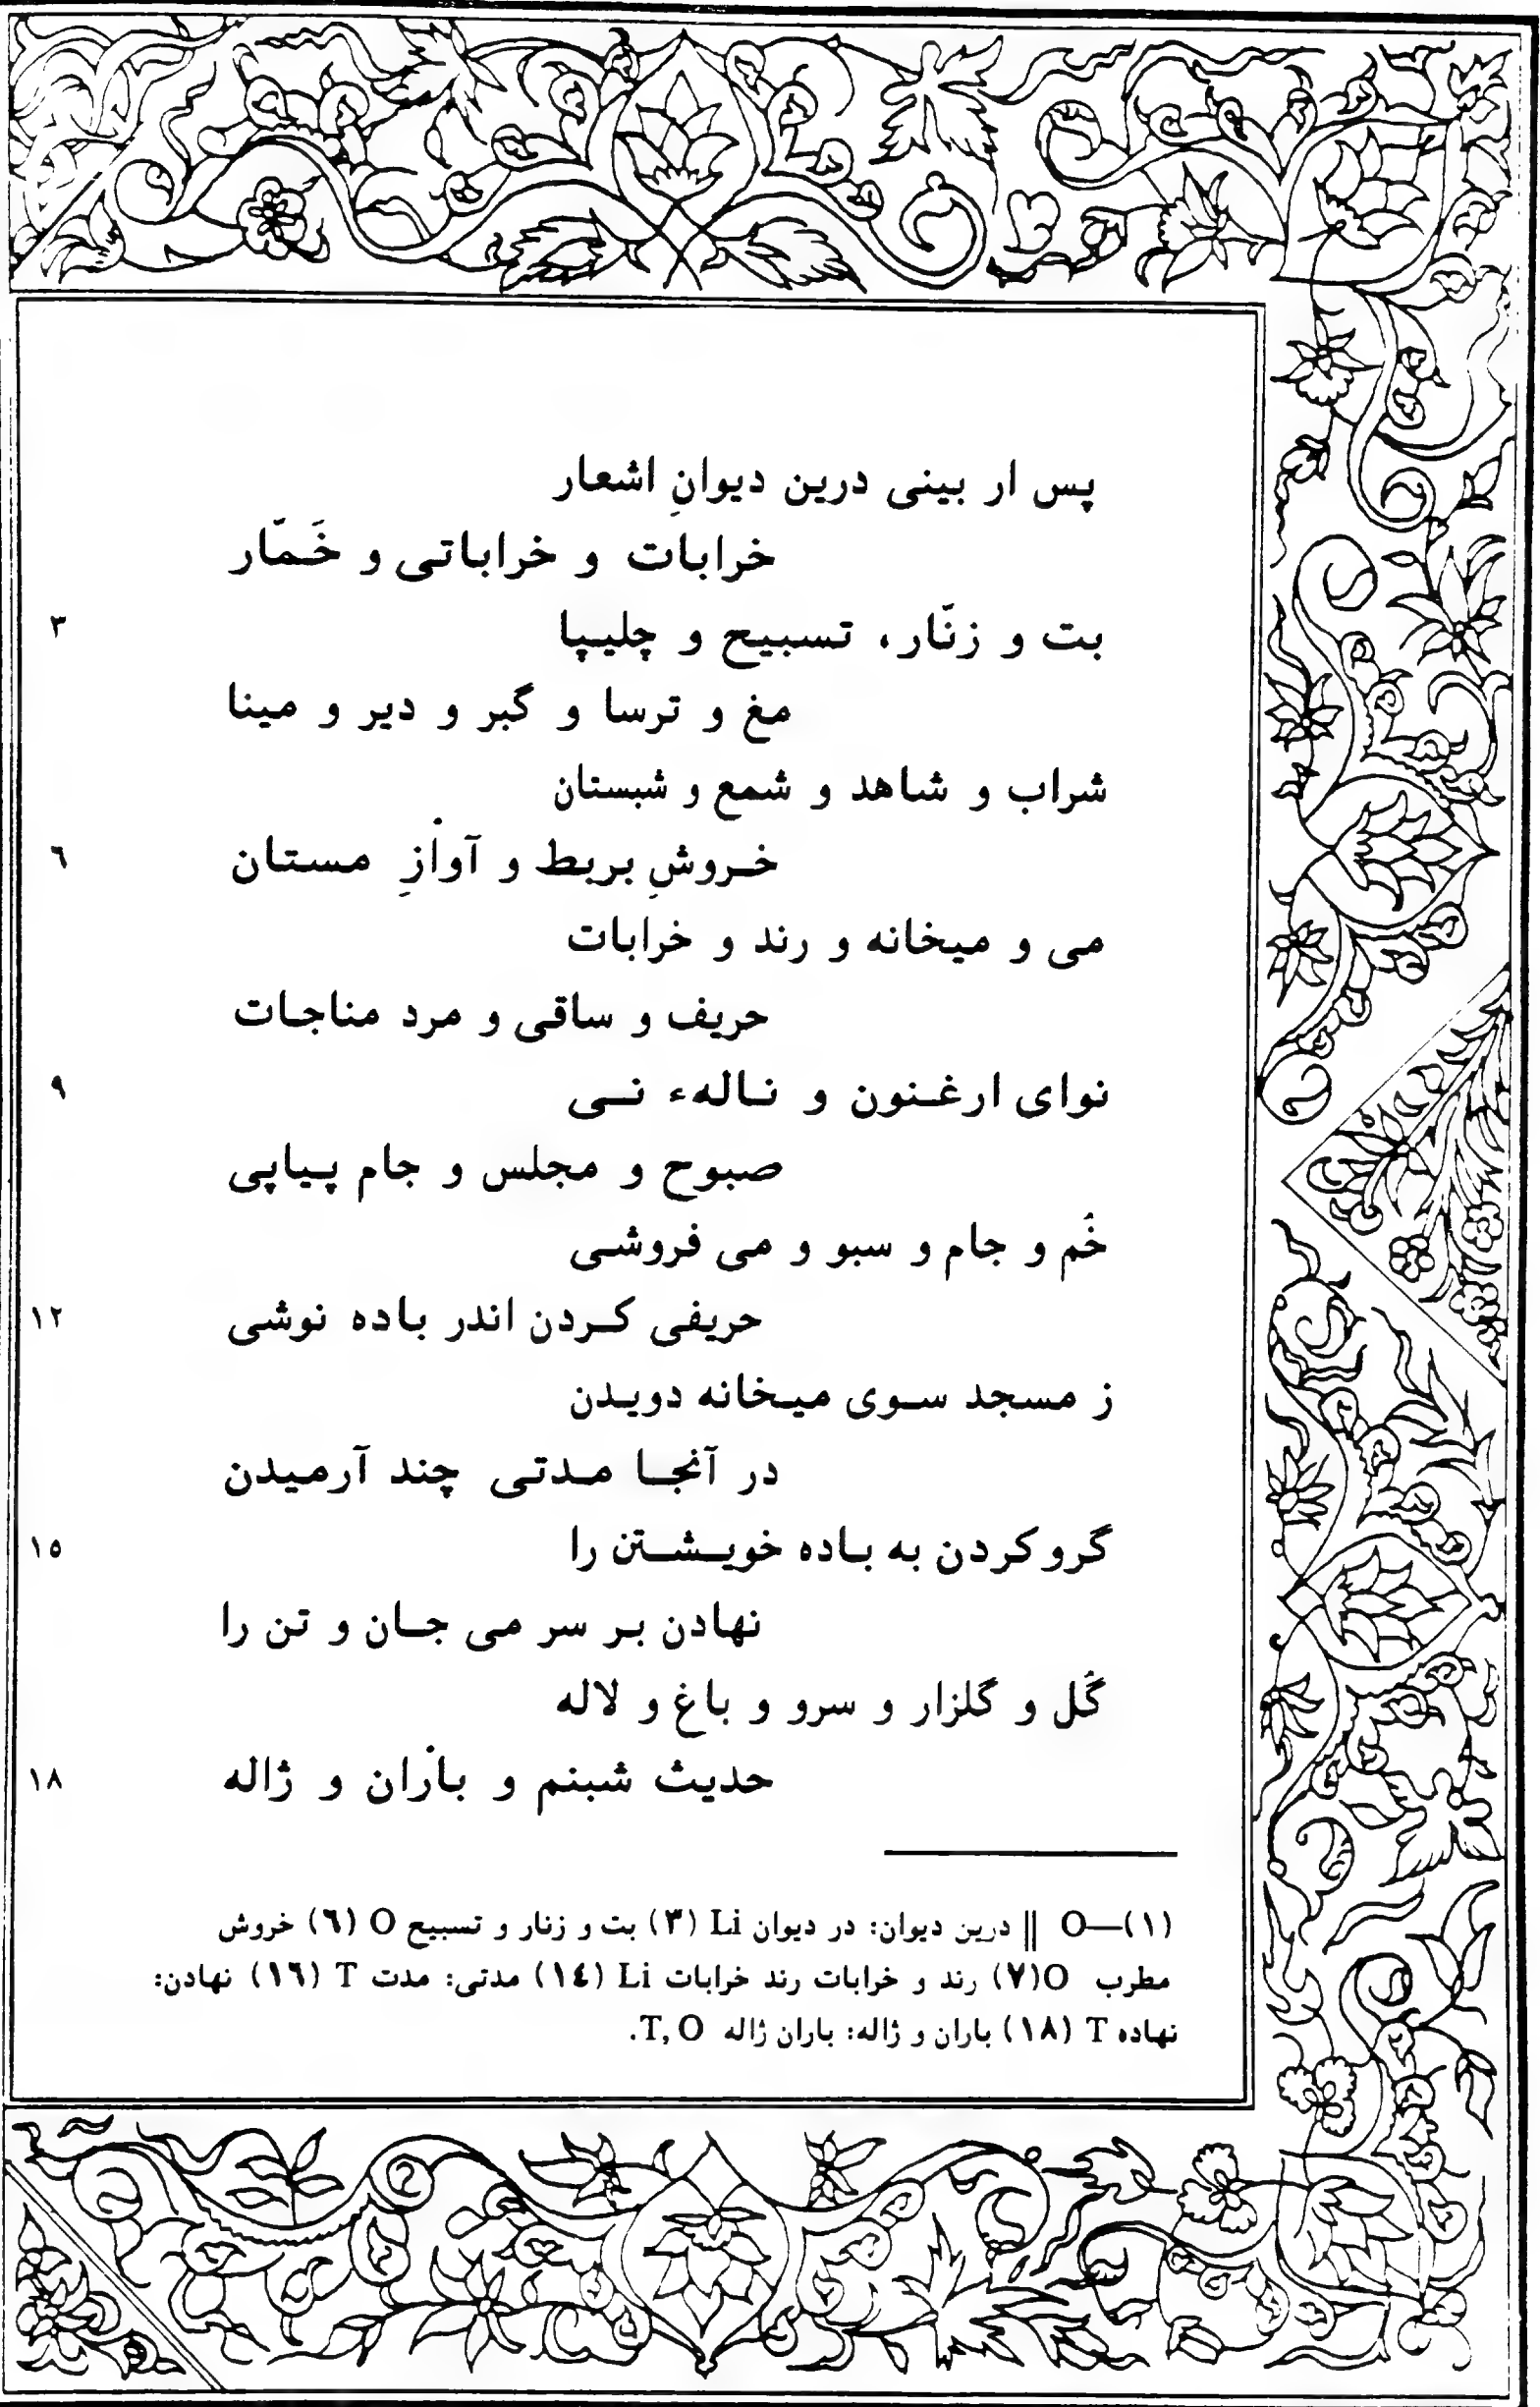 پس ار بینی درین دیوانِ اشعار
خرابات و خراباتی و خَمّار
بت و زنّار، تسبیح و چلیپا
۳
مغ و ترسا و گبر و دیر و مینا
شراب و شاهد و شمع و شبستان
خروشِ بربط و آوازِ مستان
٦
می و میخانه و رند و خرابات
حریف و ساقی و مرد مناجات
نوای ارغنون و نالهء نی
۹
صبوح و مجلس و جام پیاپی
خُم و جام و سبو و می فروشی
حریفی کردن اندر باده نوشی
۱۲
ز مسجد سوی میخانه دویدن
در آنجا مدتی چند آرمیدن
گرو کردن به باده خویشتن را
۱٥
نهادن بر سر می جان و تن را
گُل و گلزار و سرو و باغ و لاله
حدیث شبنم و باران و ژاله
۱۸
(۱)—O || درین دیوان: در دیوان Li (۳) بت و زنار و تسبیح O (٦) خروش
مطرب O(۷) رند و خرابات رند خرابات Li (۱٤) مدتی: مدت T (۱٦) نهادن:
نهاده T (۱۸) باران و ژاله: باران ژاله T, O.